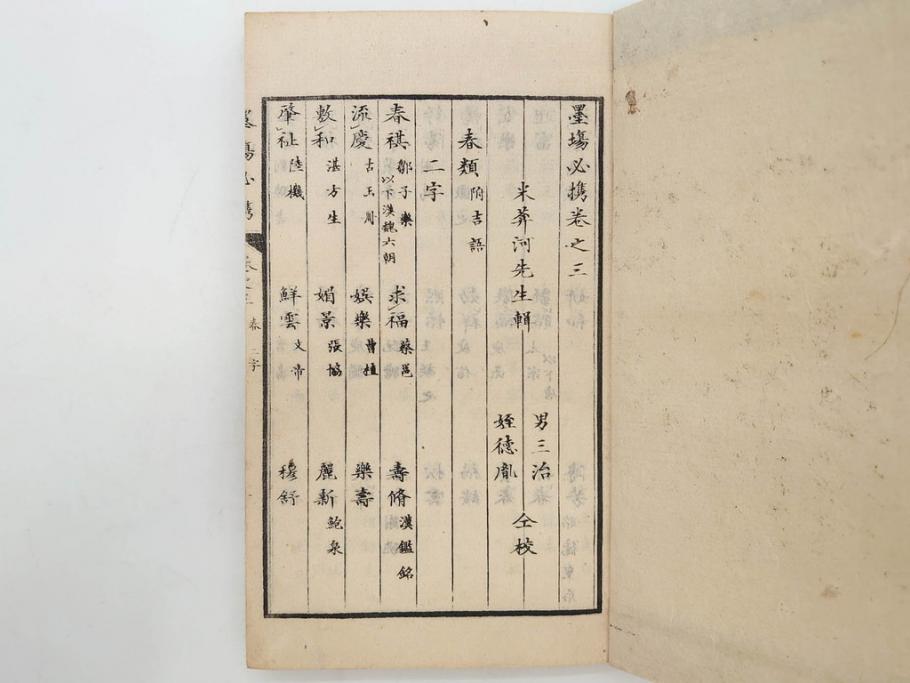 墨場必携卷之三
米葊河先生輯
男三治
姪德胤
仝校
春類 附吉語
二字
春祺 鄒子樂 以下漢魏六朝
求福 蔡邕
壽脩 漢鑑銘
流慶 古玉用
娯樂 曹植
樂壽
敷和 湛方生
媚景 張協
麗新 鮑泉
肇祉 陸機
鮮雲 文帝
穆舒
墨場必携
卷之三
春
二字